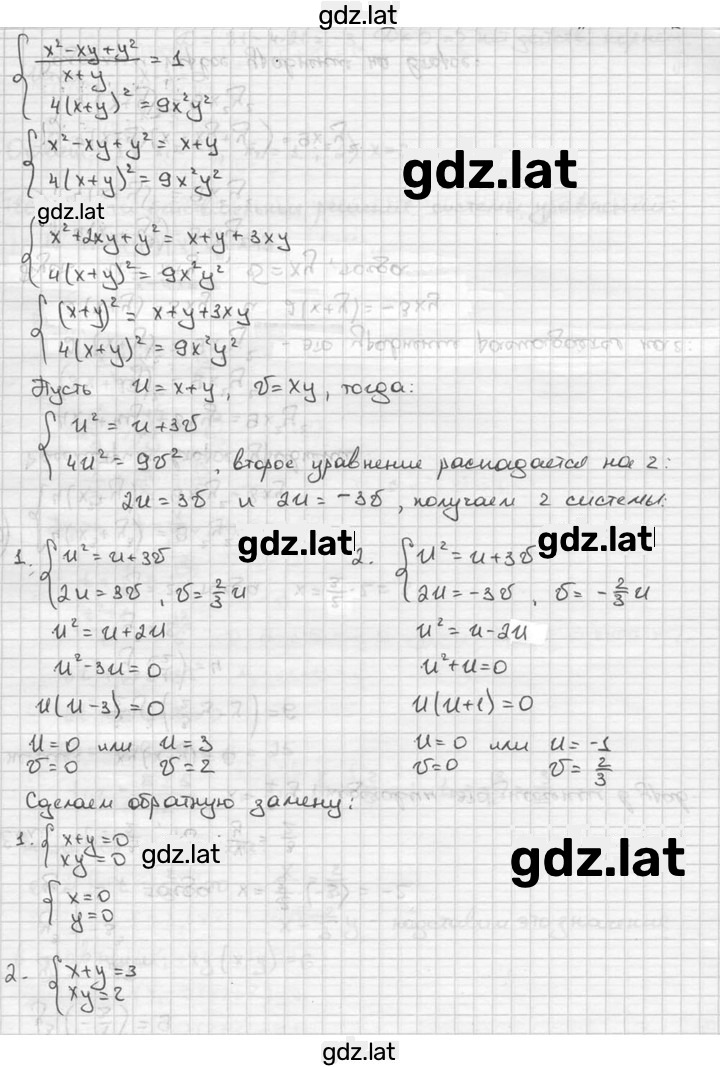 gdz.lat
{ (x²-xy+y²)/(x+y) = 1
4(x+y)² = 9x²y²
{ x²-xy+y² = x+y
4(x+y)² = 9x²y²
gdz.lat
gdz.lat
{ x²+2xy+y² = x+y+3xy
4(x+y)² = 9x²y²
{ (x+y)² = x+y+3xy
4(x+y)² = 9x²y²
Пусть u=x+y, v=xy, тогда:
{ u² = u+3v
4u² = 9v², второе уравнение распадается на 2:
2u=3v и 2u=-3v, получаем 2 системы:
gdz.lat gdz.lat
1. { u² = u+3v 2. { u² = u+3v
2u = 3v, v = 2/3 u 2u = -3v, v = -2/3 u
u² = u+2u u² = u-2u
u²-3u=0 u²+u=0
u(u-3)=0 u(u+1)=0
u=0 или u=3 u=0 или u=-1
v=0 v=2 v=0 v=2/3
Сделаем обратную замену:
1. { x+y=0
xy=0
gdz.lat
gdz.lat
{ x=0
y=0
2. { x+y=3
xy=2
gdz.lat